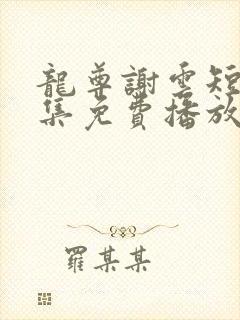 龍尊謝雲短
集免費播放
羅某某